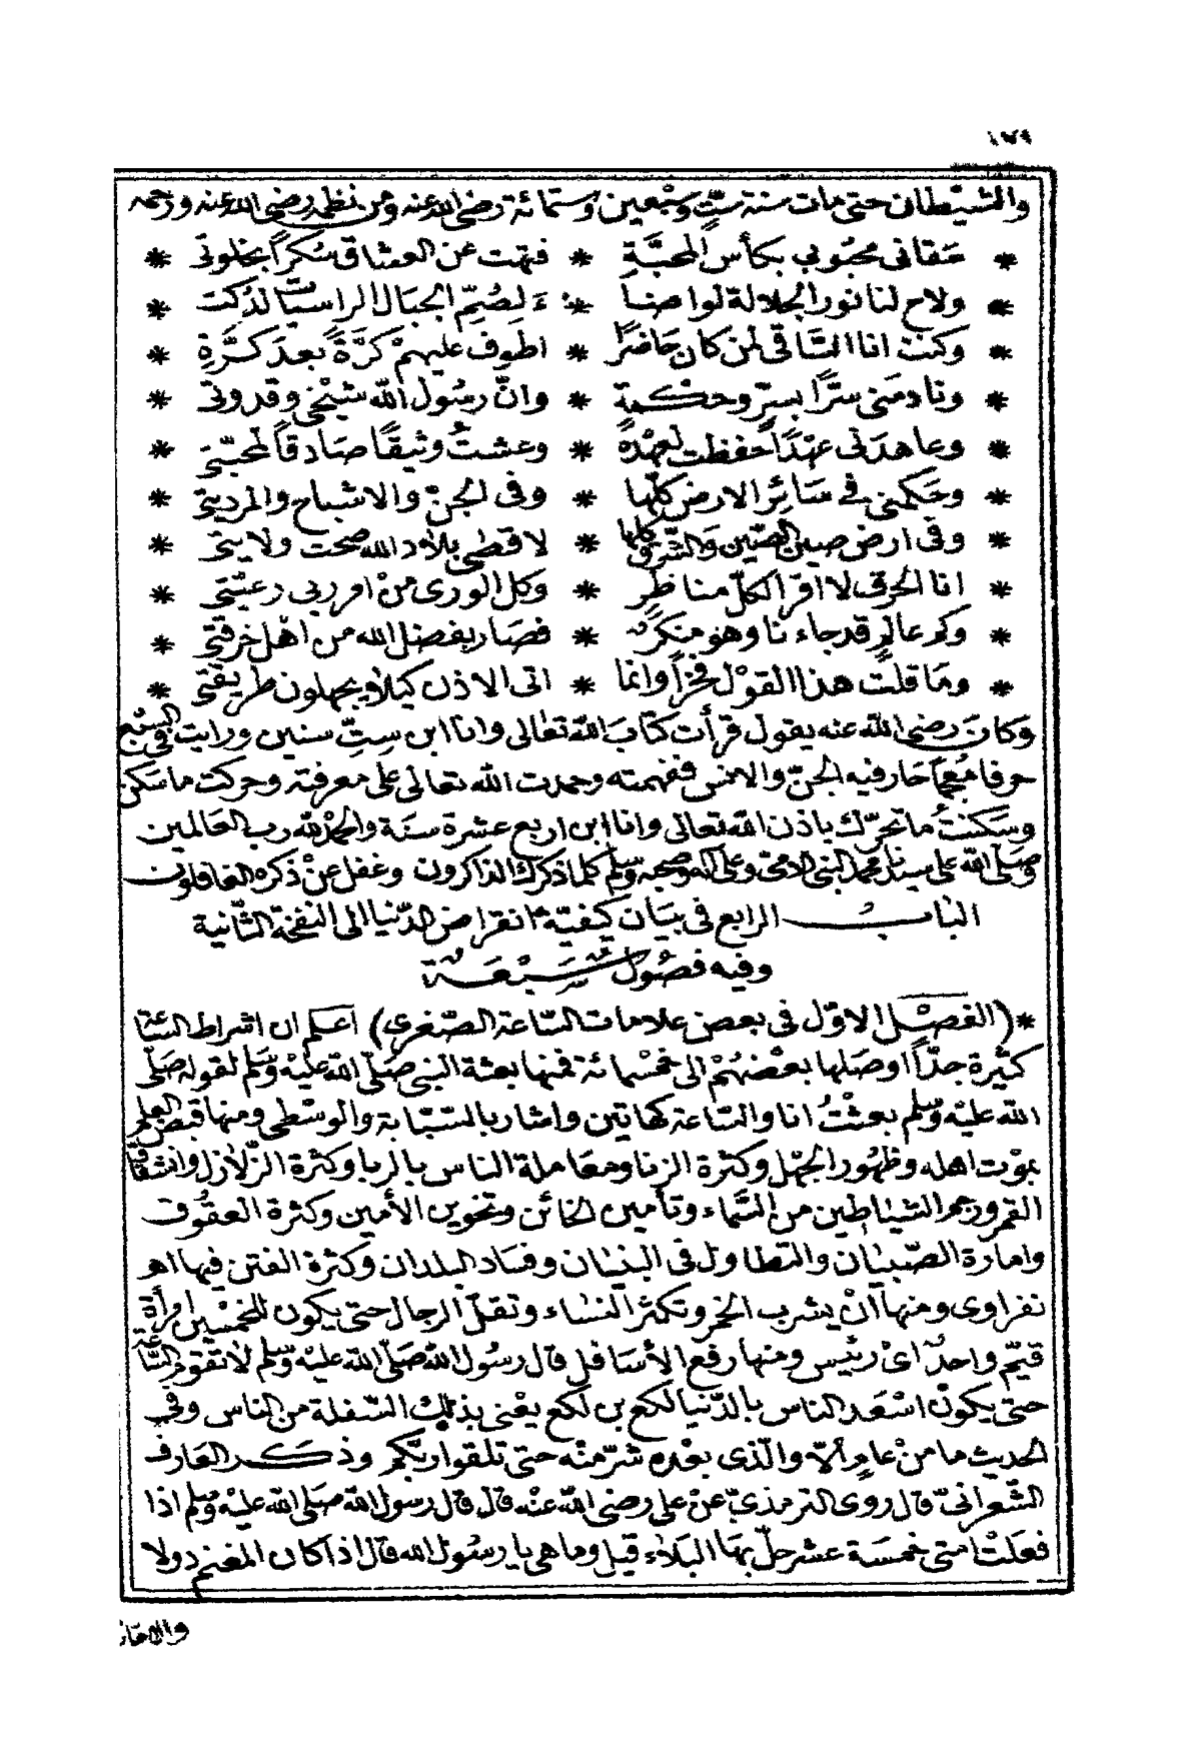 ١٧٩
والشيطان حتى مات سنة ستّ وسبعين وستمائة رضى الله عنه ومن نظمه رضى الله عنه ورحمه
* سقانى محبوبي بكأس المحبّةِ * فتهت عن العشاق سُكراً بخلوتى *
* ولاح لنا نور الجلالة لو اضا * لصُمِّ الجبال الراسيات لدُكت *
* وكنت انا الساقى لمن كان حاضرًا * اطوف عليهمْ كرَّةً بعدَ كرَّةِ *
* ونادمَنى سرًّا بسرٍّ وحكمةٍ * وانّ رسُول الله شيْخى وقدوتى *
* وعاهدَنى عهْدًا حفظت لعهْدهُ * وعشتُ وثيقًا صَادقاً لمحبّتى *
* وحَكمنى فى سَائِر الارض كلّها * وفى الجنّ والاشباح والمرديتى *
* وفى ارض صين الصّين والشّرق كلها * لاقطى بلاد الله صحت ولايتى *
* انا الحرف لا اقرا لكلّ مناظرٍ * وكل الورى منْ امر ربى رعيّتى *
* وكم عالمٍ قد جاءنا وهو منكرٌ * فصَار بفضل الله من اهْل خرقتى *
* ومَا قلت هذا القوْل فخراً وانما * اتى الاذن كيلا يجهلون طريقتى *
وَكانَ رضى الله عنه يقول قرأت كتابَ الله تعالى وانا ابن سِتِّ سنين ورايت فى السّبع
حروفا مُعجماً حار فيه الجنّ والانس ففهمته وحمدت الله تعالى على معرفته وحركت ما سكن
وسَكنتُ ما تحرّك باذن الله تعالى وانا ابن اربع عشرة سنَة والحمْد لله رب العَالمين
وصَلى الله على سيدنا محمد النبى الامى وعلى آله وصحبه وسلم كلما ذكرك الذاكرون وغفل عنْ ذكره الغافلون
البَابُ الرابع فى بيَان كيفيّة انقراض الدّنيا الى النفخة الثّانية
وفيه فصُولٌ سَبْعَة
*(الفصْل الاوّل فى بعض علامات السّاعة الصّغرى) اعلم ان اشراط السّاعة
كثيرة جدًّا اوصَلها بعْضهُمْ الى خمْسمائة فمنها بعثة النبى صَلى الله عليْه وسَلم لقوله صَلى
الله عليْه وسّلم بعثتُ انا والسّاعة كهاتين واشار بالسّبّابة والوسْطى ومنها قبْض العلم
بموْت اهله وظهُور الجهْل وكثرة الزنا ومعَاملة الناس بالربا وكثرة الزّلازل وانشقاق
القمر ورجم الشيَاطين من السَّماء وتأمين الخائن وتخوين الأمين وكثرة العقُوق
وامارة الصّبيَان والتطاول فى البنيَان وفسَاد البلدان وكثرة الفتن فيها اهـ
نفراوى ومنها انْ يشرب الخمر وتكثر النسَاء وتقلّ الرجال حتى يكون للخمْسين امرأة
قيّم واحدٌ اىْ رئيس ومنها رفع الأسَافل قال رسُول الله صَلى الله عليْه وسّلم لا تقوم السّاعة
حتى يكون اسْعَد الناس بالدّنيا لكع بن لكع يعْنى بذلك السّفلة من الناس وفى
الحديث ما منْ عامٍ الاّ والّذى بعْده شرّ منْه حتى تلقوا ربّكم وذكَر العَارف
الشّعرانىّ قال روى الترمذىّ عنْ على رضى الله عنْه قال قال رسول الله صَلى الله عليْه وسّلم اذا
فعَلتْ امتى خمسَة عشر حلّ بهَا البَلاء قيل وما هى يا رسُول الله قال اذا كان المغنم دولا